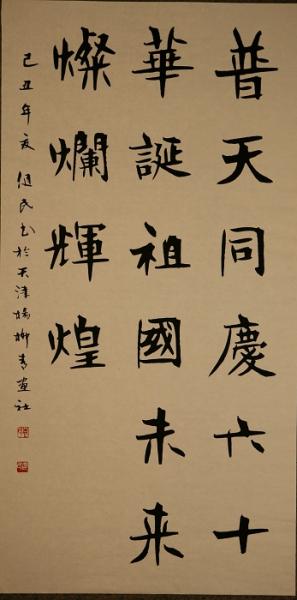 普天同慶六十
華誕祖國未来
燦爛輝煌
己丑年夏 民书於天津楊柳青画社